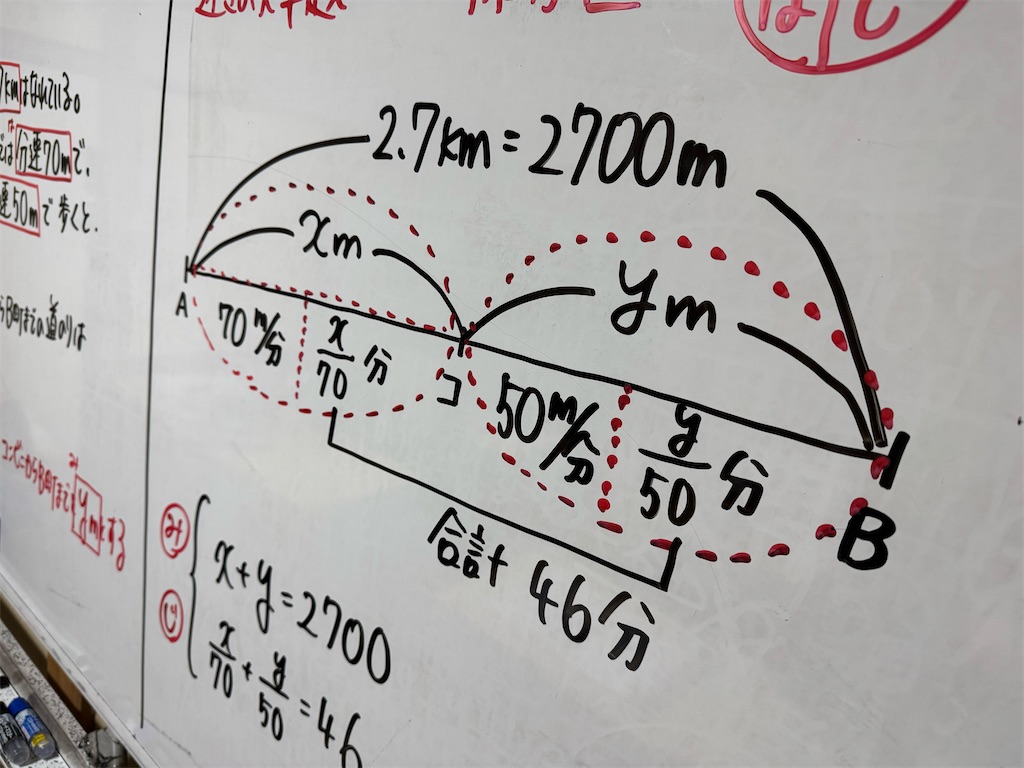 kmはなれている。
では分速70mで、
速50mで歩くと、
らB町までの道のりは
コンビニからB町までをymとする
2.7km=2700m
xm
ym
A
70m/分
x/70 分
コ
50m/分
y/50 分
B
合計 46分
み
じ
x+y=2700
x/70+y/50=46